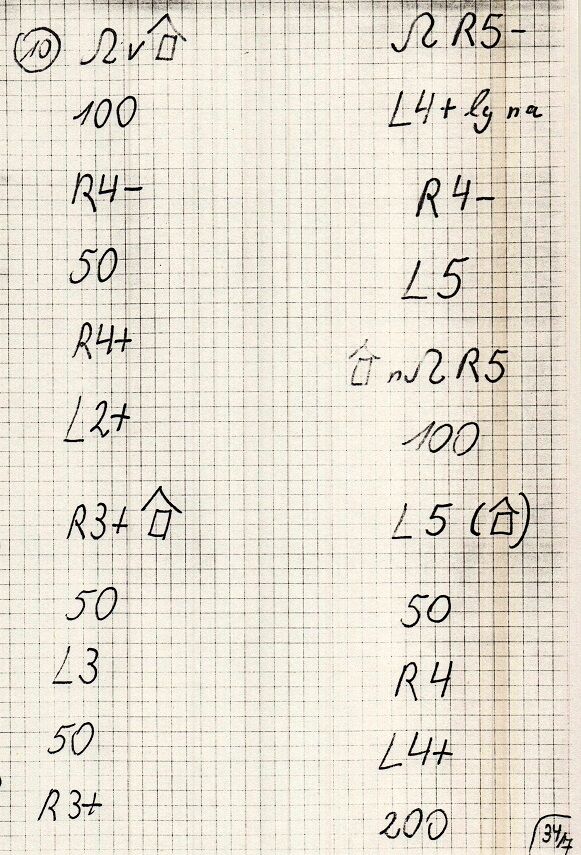 10 Ω v
100
R4-
50
R4+
L2+
R3+
50
L3
50
R3+
Ω R5-
L4+ lg na
R4-
L5
n Ω R5
100
L5 ( )
50
R4
L4+
200
34/7